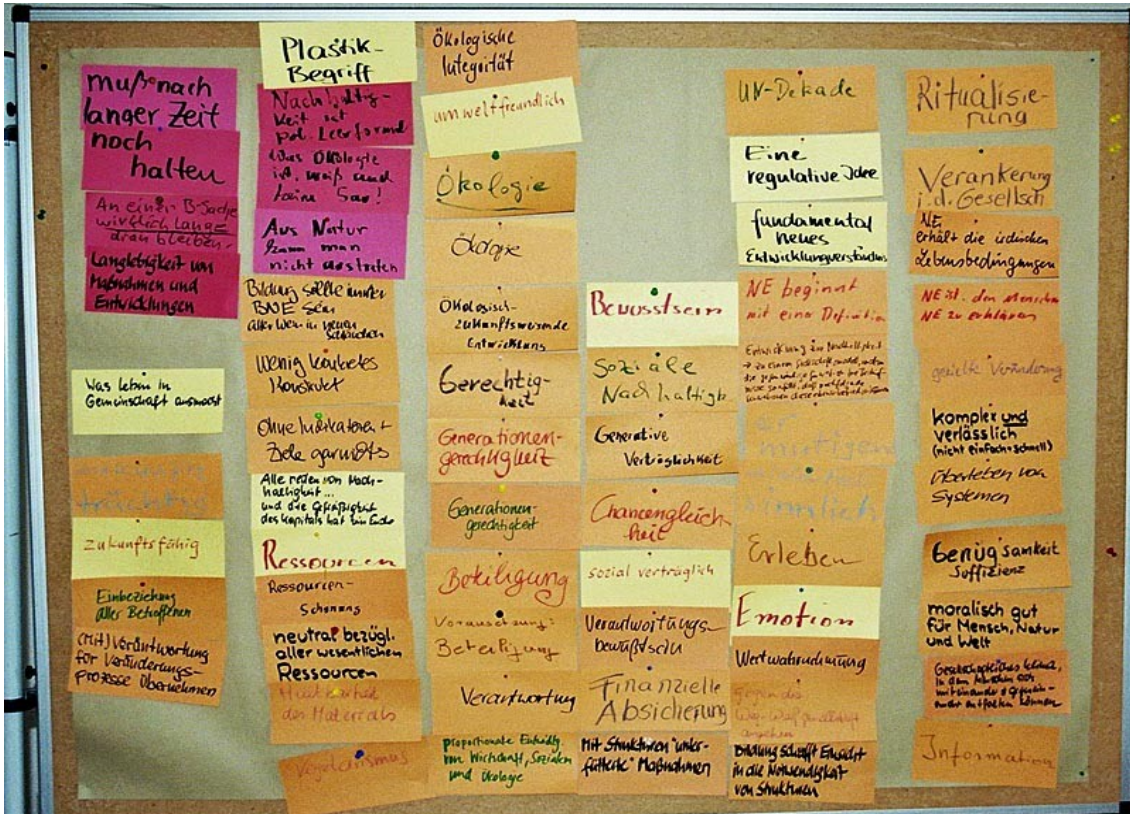 muß nach
langer Zeit
noch
halten
An einer B-Sache
wirklich lange
dran bleiben.
Langlebigkeit von
Maßnahmen und
Entwicklungen
Was leben in
Gemeinschaft ausmacht
zukunftsfähig
Einbeziehung
aller Betroffenen
(Mit)Verantwortung
für Veränderungs-
prozesse übernehmen
Plastik-
Begriff
Nachhaltig-
keit ist
pol. Leerformel
Was Ökologie
ist, weiß auch
keine Sau!
Aus Natur
kann man
nicht austreten
Bildung sollte immer
BNE sein
alter Wein in neuen
Schläuchen
Wenig konkretes
Konstrukt
Ohne Indikatoren +
Ziele garnichts
Alle reden von Nach-
haltigkeit...
und die Gefräßigkeit
des Kapitals hat kein Ende
Ressourcen
Ressourcen-
Schonung
neutral bezügl.
aller wesentlichen
Ressourcen
Haltbarkeit
des Materials
Ökologische
Integrität
umweltfreundlich
Ökologie
Ökologie
Ökologisch-
zukunftsweisende
Entwicklung
Gerechtig-
keit
Generationen-
gerechtigkeit
Generationen-
gerechtigkeit
Beteiligung
Voraussetzung:
Beteiligung
Verantwortung
proportionale Entwicklg.
von Wirtschaft, Sozialem
und Ökologie
Bewusstsein
Soziale
Nachhaltigk.
Generative
Verträglichkeit
Chancengleich
heit
sozial verträglich
Verantwortungs-
bewußtsein
Finanzielle
Absicherung
Mit Strukturen "unter-
fütterte" Maßnahmen
UN-Dekade
Eine
regulative Idee
fundamental
neues
Entwicklungsverständnis
NE beginnt
mit einer Definition
Entwicklung zur Nachhaltigkeit
ermutigen
Erleben
Emotion
Wertwahrnehmung
gegen die
Weg-Werf-gesellschaft
angehen
Bildung schafft Einsicht
in die Notwendigkeit
von Strukturen
Ritualisie-
rung
Verankerung
i.d. Gesellsch
NE
erhält die irdischen
Lebensbedingungen
NE ist den Menschen
NE zu erklären
gezielte Veränderung
komplex und
verlässlich
(nicht einfach+schnell)
Überleben von
Systemen
Genügsamkeit
Suffizienz
moralisch gut
für Mensch, Natur
und Welt
Gesellschaftliches Klima,
in dem Menschen sich
miteinander +
entfalten können
Information